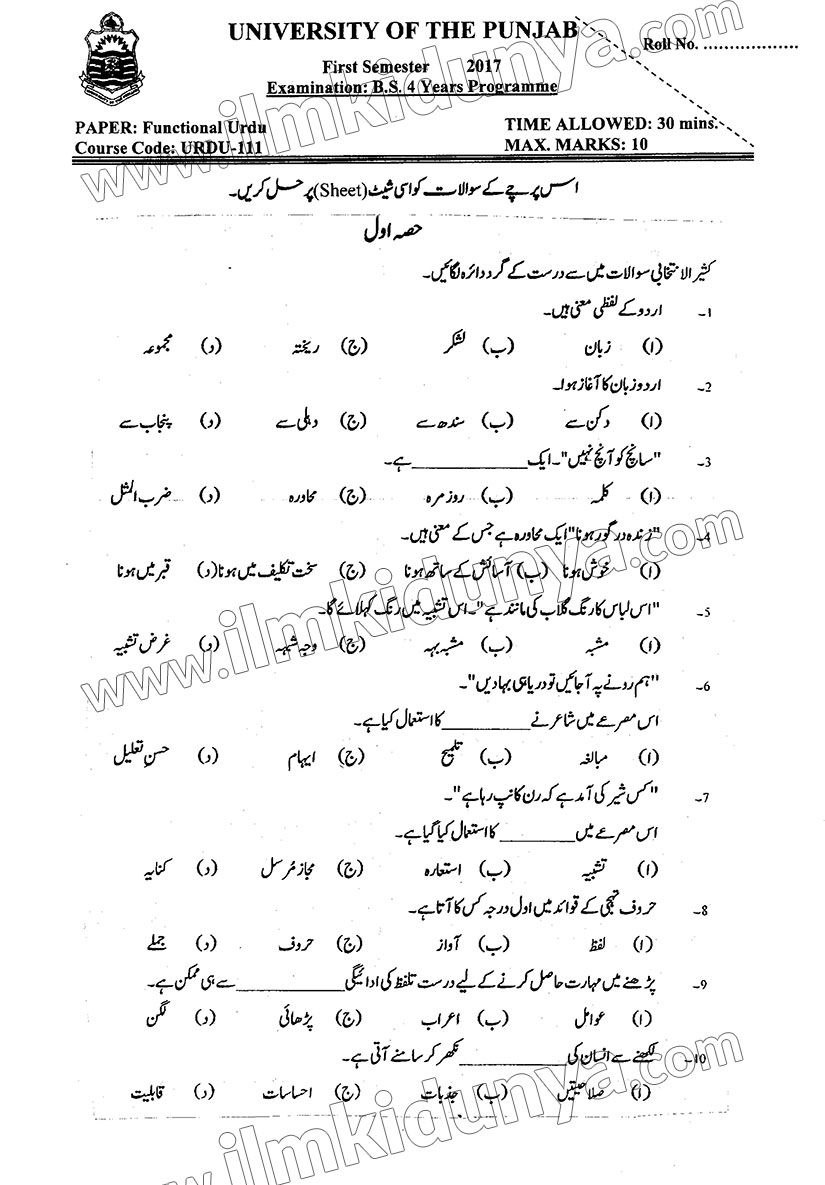 UNIVERSITY OF THE PUNJAB
Roll No. ...................
First Semester 2017
Examination: B.S. 4 Years Programme
PAPER: Functional Urdu
TIME ALLOWED: 30 mins.
Course Code: URDU-111
MAX. MARKS: 10
اس پرچے کے سوالات کو اسی شیٹ (Sheet) پر حل کریں۔
حصہ اول
کثیر الانتخابی سوالات میں سے درست کے گرد دائرہ لگائیں۔
1۔ اردو کے لفظی معنی ہیں۔
(ا) زبان (ب) لشکر (ج) ریختہ (د) مجموعہ
2۔ اردو زبان کا آغاز ہوا۔
(ا) دکن سے (ب) سندھ سے (ج) دہلی سے (د) پنجاب سے
3۔ "سانچ کو آنچ نہیں"۔ ایک ____________ ہے۔
(ا) کلمہ (ب) روزمرہ (ج) محاورہ (د) ضرب المثل
4۔ "زندہ درگور ہونا" ایک محاورہ ہے جس کے معنی ہیں۔
(ا) خوش ہونا (ب) آسائش کے ساتھ ہونا (ج) سخت تکلیف میں ہونا (د) قبر میں ہونا
5۔ "اس لباس کا رنگ گلاب کی مانند ہے"۔ اس تشبیہ میں رنگ کہلائے گا۔
(ا) مشبہ (ب) مشبہ بہہ (ج) وجہ شبہہ (د) غرض تشبیہ
6۔ "ہم رونے پہ آ جائیں تو دریا ہی بہا دیں"۔
اس مصرعے میں شاعر نے __________ کا استعمال کیا ہے۔
(ا) مبالغہ (ب) تلمیح (ج) ایہام (د) حسنِ تعلیل
7۔ "کس شیر کی آمد ہے کہ رن کانپ رہا ہے"۔
اس مصرعے میں ________ کا استعمال کیا گیا ہے۔
(ا) تشبیہ (ب) استعارہ (ج) مجاز مُرسل (د) کنایہ
8۔ حروف تہجی کے قوائد میں اول درجہ کس کا آتا ہے۔
(ا) لفظ (ب) آواز (ج) حروف (د) جملے
9۔ پڑھنے میں مہارت حاصل کرنے کے لیے درست تلفظ کی ادائیگی ____________ سے ہی ممکن ہے۔
(ا) عوامل (ب) اعراب (ج) پڑھائی (د) لگن
10۔ لکھنے سے انسان کی ____________ نکھر کر سامنے آتی ہے۔
(ا) صلاحیتیں (ب) جذبات (ج) احساسات (د) قابلیت
www.ilmkidunya.com
www.ilmkidunya.com
www.ilmkidunya.com